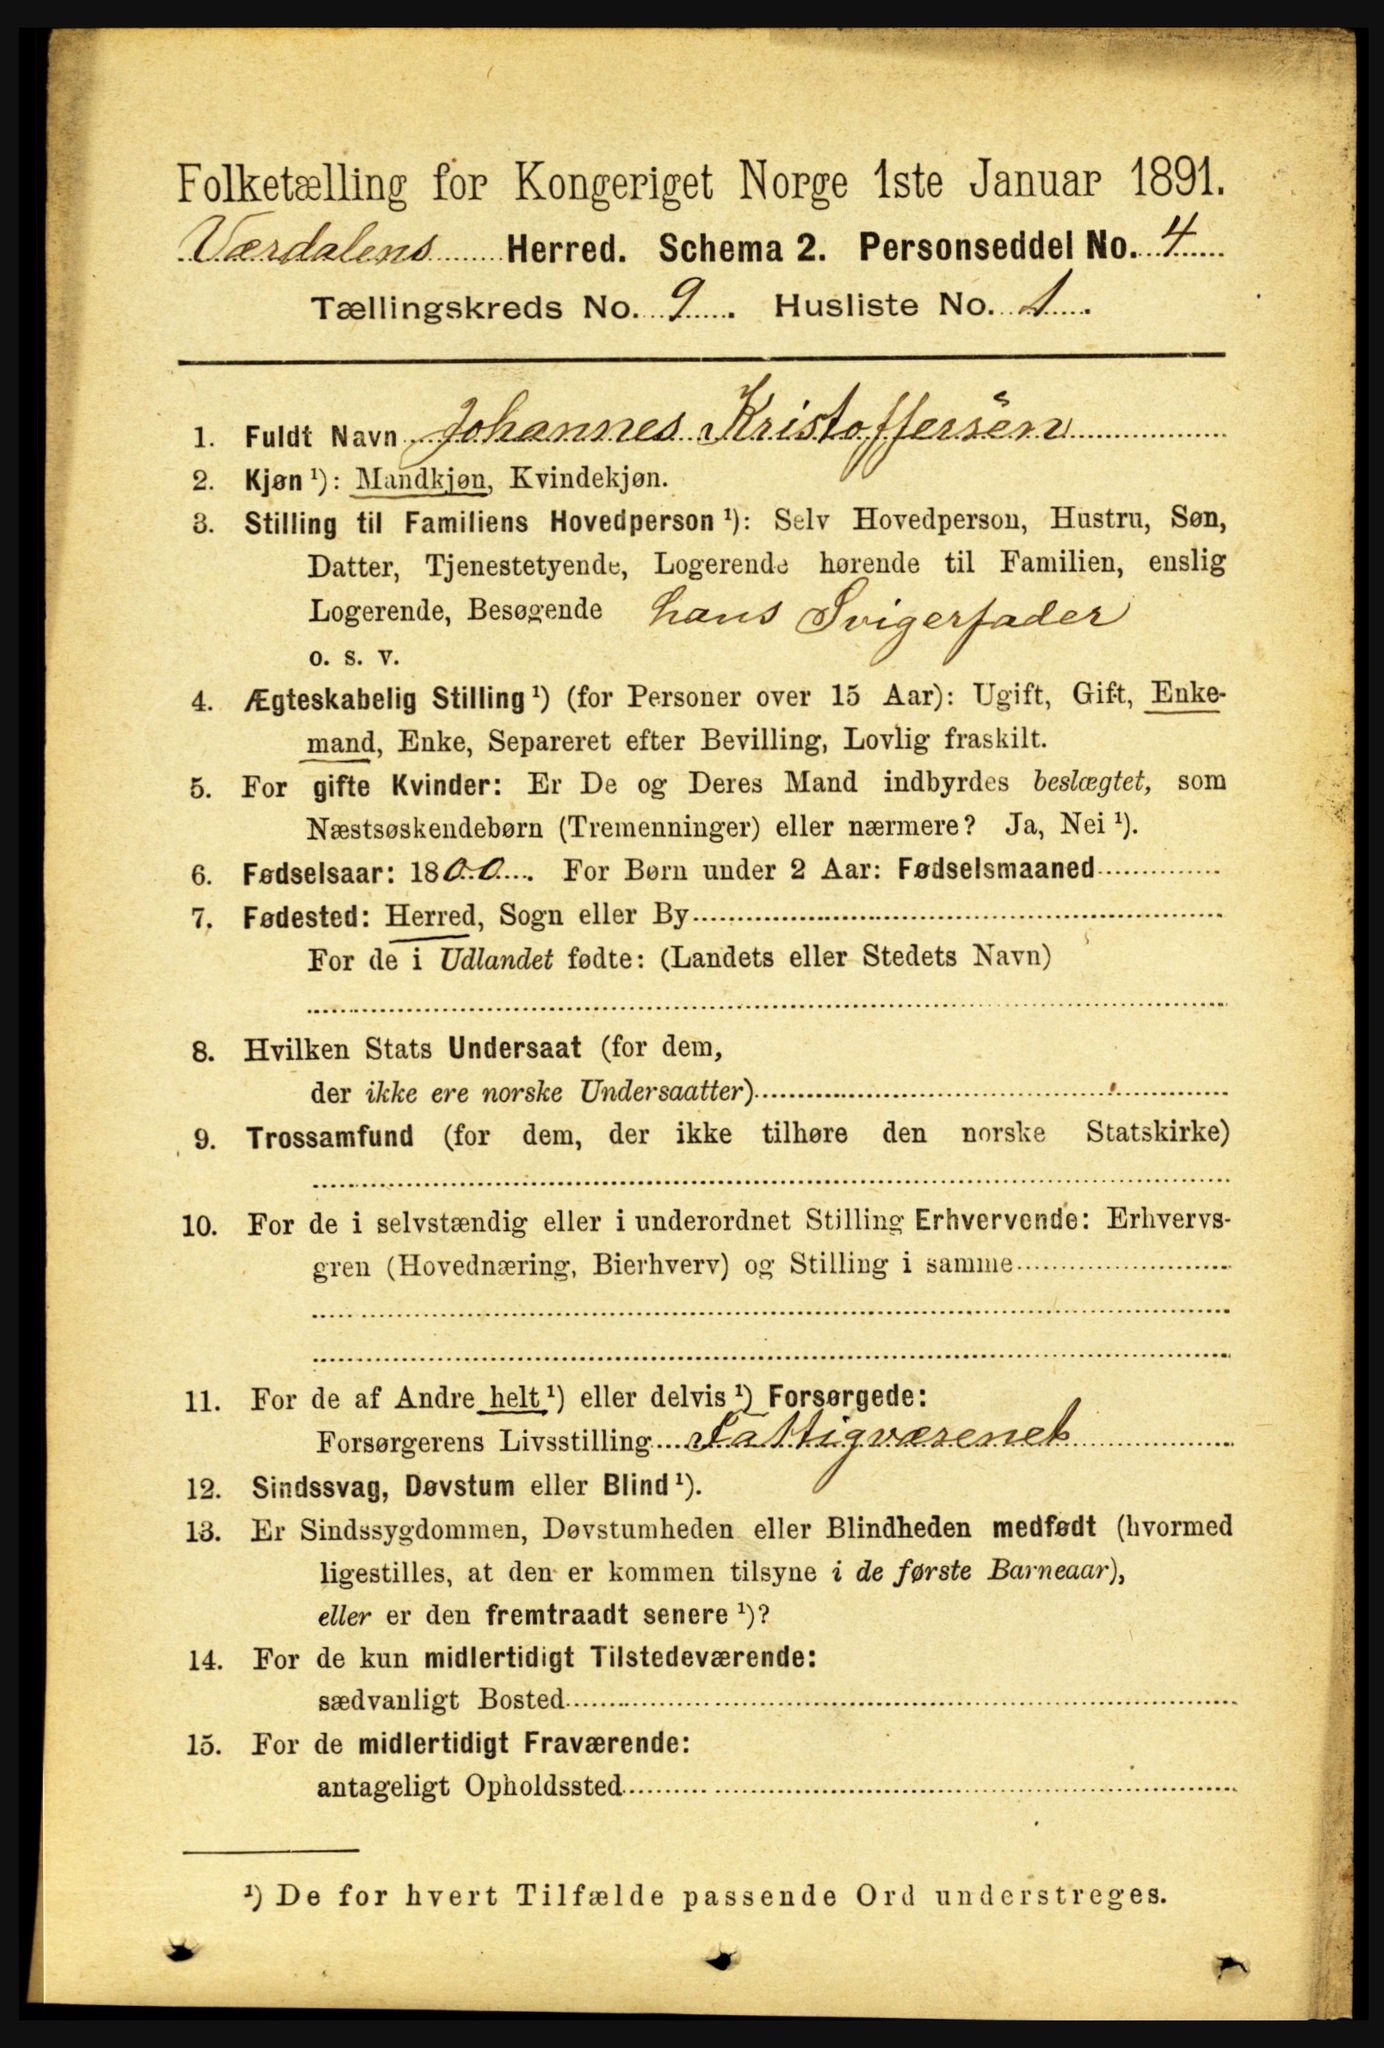 Folketælling for Kongeriget Norge 1ste Januar 1891.
Værdalens Herred. Schema 2. Personseddel No. 4
Tællingskreds No. 9. Husliste No. 1.
1. Fuldt Navn Johannes Kristoffersen
2. Kjøn ¹): Mandkjøn, Kvindekjøn.
3. Stilling til Familiens Hovedperson ¹): Selv Hovedperson, Hustru, Søn,
Datter, Tjenestetyende, Logerende hørende til Familien, enslig
Logerende, Besøgende hans Svigerfader
o. s. v.
4. Ægteskabelig Stilling ¹) (for Personer over 15 Aar): Ugift, Gift, Enke-
mand, Enke, Separeret efter Bevilling, Lovlig fraskilt.
5. For gifte Kvinder: Er De og Deres Mand indbyrdes beslægtet, som
Næstsøskendebørn (Tremenninger) eller nærmere? Ja, Nei ¹).
6. Fødselsaar: 1800. For Børn under 2 Aar: Fødselsmaaned
7. Fødested: Herred, Sogn eller By
For de i Udlandet fødte: (Landets eller Stedets Navn)
8. Hvilken Stats Undersaat (for dem,
der ikke ere norske Undersaatter)
9. Trossamfund (for dem, der ikke tilhøre den norske Statskirke)
10. For de i selvstændig eller i underordnet Stilling Erhvervende: Erhvervs-
gren (Hovednæring, Bierhverv) og Stilling i samme
11. For de af Andre helt ¹) eller delvis ¹) Forsørgede:
Forsørgerens Livsstilling Fattigvæsenet
12. Sindssvag, Døvstum eller Blind ¹).
13. Er Sindssygdommen, Døvstumheden eller Blindheden medfødt (hvormed
ligestilles, at den er kommen tilsyne i de første Barneaar),
eller er den fremtraadt senere ¹)?
14. For de kun midlertidigt Tilstedeværende:
sædvanligt Bosted
15. For de midlertidigt Fraværende:
antageligt Opholdssted
¹) De for hvert Tilfælde passende Ord understreges.